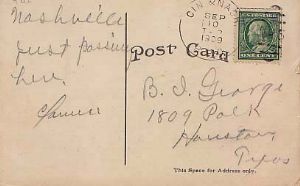 Nashville
just passing
here.
Post Card
SEP
10
1909
B. I. George
1809 Polk
Houston
Texas
This Space for Address only.
ONE CENT